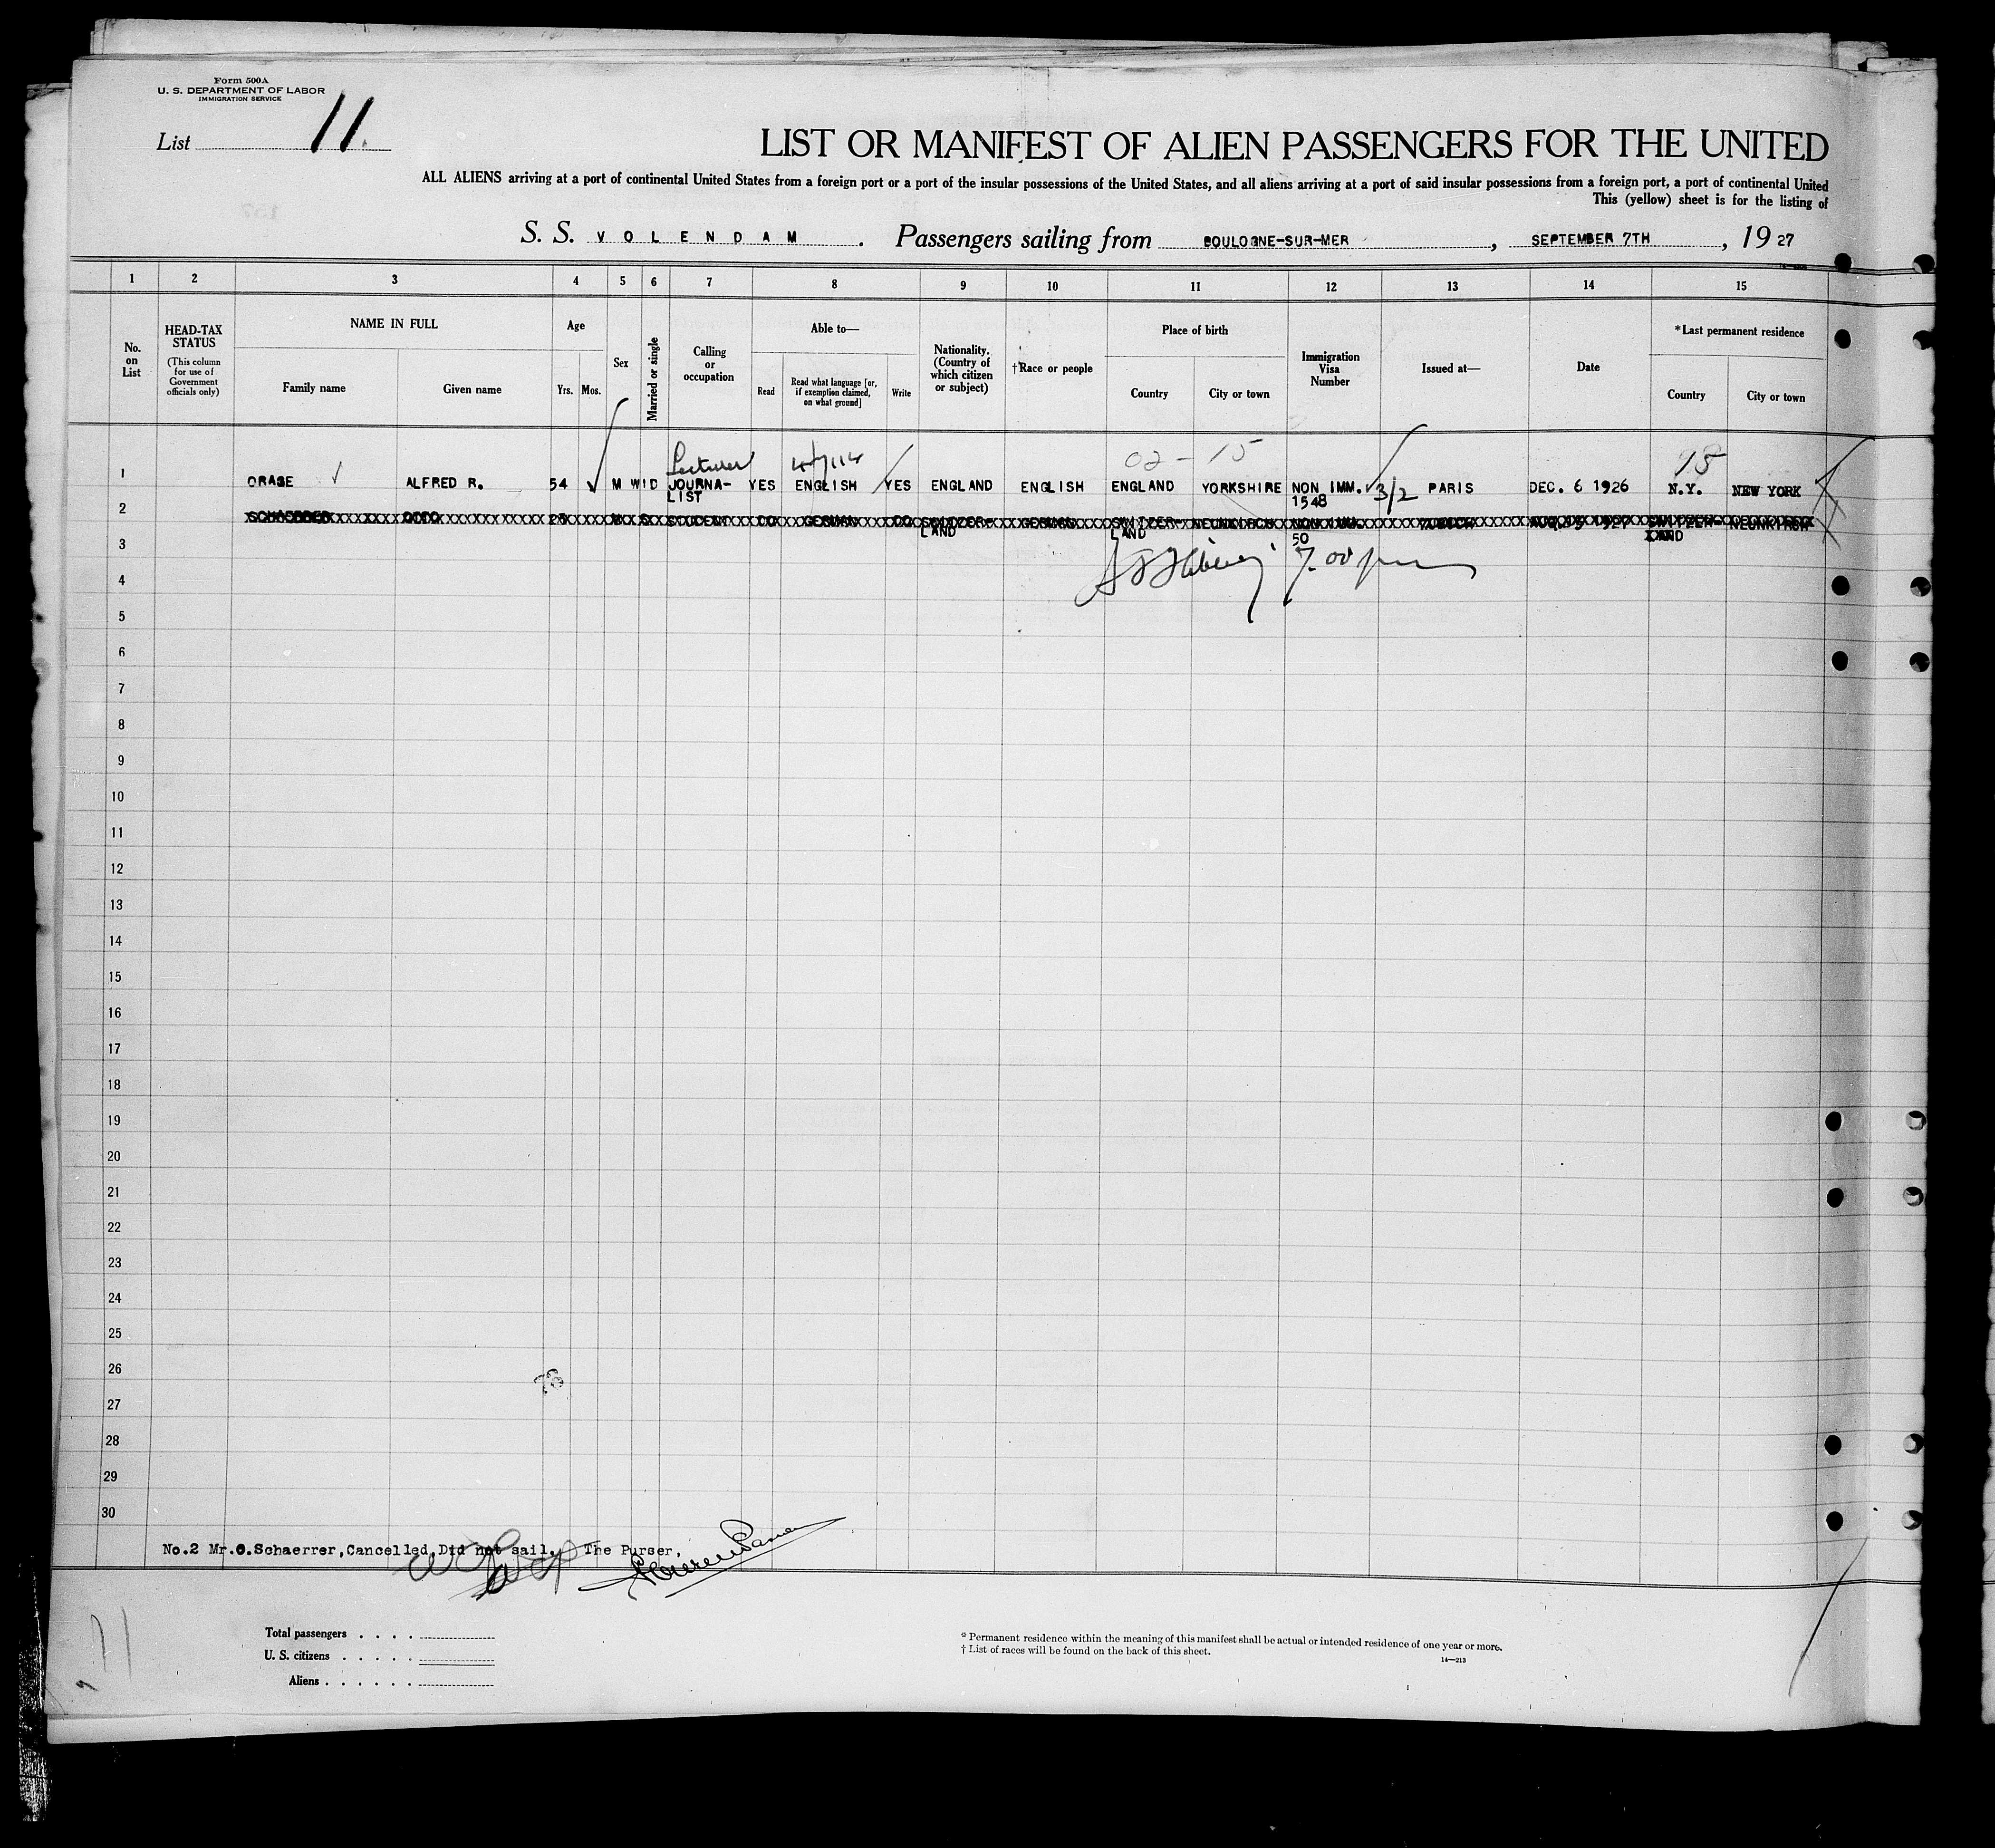 Form 500A
U. S. DEPARTMENT OF LABOR
IMMIGRATION SERVICE
List 11.
LIST OR MANIFEST OF ALIEN PASSENGERS FOR THE UNITED
ALL ALIENS arriving at a port of continental United States from a foreign port or a port of the insular possessions of the United States, and all aliens arriving at a port of said insular possessions from a foreign port, a port of continental United
This (yellow) sheet is for the listing of
S. S. VOLENDAM. Passengers sailing from BOULOGNE-SUR-MER, SEPTEMBER 7TH, 1927
1 2 3 4 5 6 7 8 9 10 11 12 13 14 15
No. on List
HEAD-TAX STATUS
(This column for use of Government officials only)
NAME IN FULL
Family name Given name
Age
Yrs. Mos.
Sex
Married or single
Calling or occupation
Able to—
Read Read what language [or, if exemption claimed, on what ground] Write
Nationality. (Country of which citizen or subject)
†Race or people
Place of birth
Country City or town
Immigration Visa Number
Issued at—
Date
*Last permanent residence
Country City or town
Lecturer 02 - 15 15
1 ORAGE ALFRED R. 54 M WID JOURNA- YES ENGLISH YES ENGLAND ENGLISH ENGLAND YORKSHIRE NON IMM. 3/2 PARIS DEC. 6 1926 N.Y. NEW YORK
LIST 1548
2 SCHAERRER OTTO STUDENT DO GERMAN DO SWITZER- GERMAN SWITZER- NEUNKIRCH NON IMM. ZURICH SWITZER- NEUNKIRCH
LAND LAND 50 LAND
3
7.00 pm
4
5
6
7
8
9
10
11
12
13
14
15
16
17
18
19
20
21
22
23
24
25
26
27
28
29
30
No.2 Mr.O.Schaerrer,Cancelled,Did not sail. The Purser,
11
Total passengers
U. S. citizens
Aliens
* Permanent residence within the meaning of this manifest shall be actual or intended residence of one year or more.
† List of races will be found on the back of this sheet.
14—213